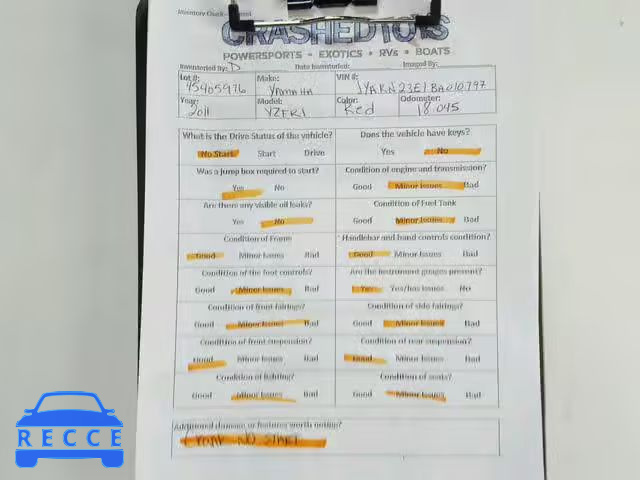 CRASHEDTOYS
POWERSPORTS • EXOTICS • RVs • BOATS
Inventoried By: D Date Inventoried: Imaged By:
Lot #: Make: VIN #:
45405976 YAMAHA JYARN23E1BA010797
Year: Model: Color: Odometer:
2011 YZFR1 Red 18045
What is the Drive Status of the vehicle? Does the vehicle have keys?
No Start Start Drive Yes No
Was a jump box required to start? Condition of engine and transmission?
Yes No Good Minor Issues Bad
Are there any visible oil leaks? Condition of Fuel Tank
Yes No Good Minor Issues Bad
Condition of Frame Handlebar and hand controls condition?
Good Minor Issues Bad Good Minor Issues Bad
Condition of the foot controls? Are the instrument gauges present?
Good Minor Issues Bad Yes Yes/has Issues No
Condition of front fairings? Condition of side fairings?
Good Minor Issues Bad Good Minor Issues Bad
Condition of front suspension? Condition of rear suspension?
Good Minor Issues Bad Good Minor Issues Bad
Condition of lighting? Condition of seats?
Good Minor Issues Bad Good Minor Issues Bad
Additional damage or features worth noting?
Crank NO START
RECCE